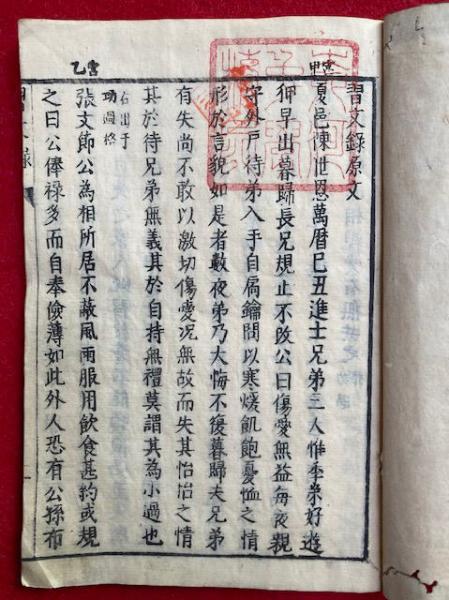 習文錄原文
宮甲
夏邑陳世恩萬曆己丑進士兄弟三人惟季弟好遊
狎早出暮歸長兄規止不改公曰傷愛無益每夜親
守外戶待弟入手自扃鑰問以寒煖飢飽憂恤之情
形於言貌如是者數夜弟乃大悔不復暮歸夫兄弟
有失尚不敢以激切傷愛况無故而失其怡怡之情
其於待兄弟無義其於自持無禮莫謂其為小過也
右出于
功過格
宮乙
張文節公為相所居不蔽風雨服用飲食甚約或規
之曰公俸祿多而自奉儉薄如此外人恐有公孫布
習文錄
一